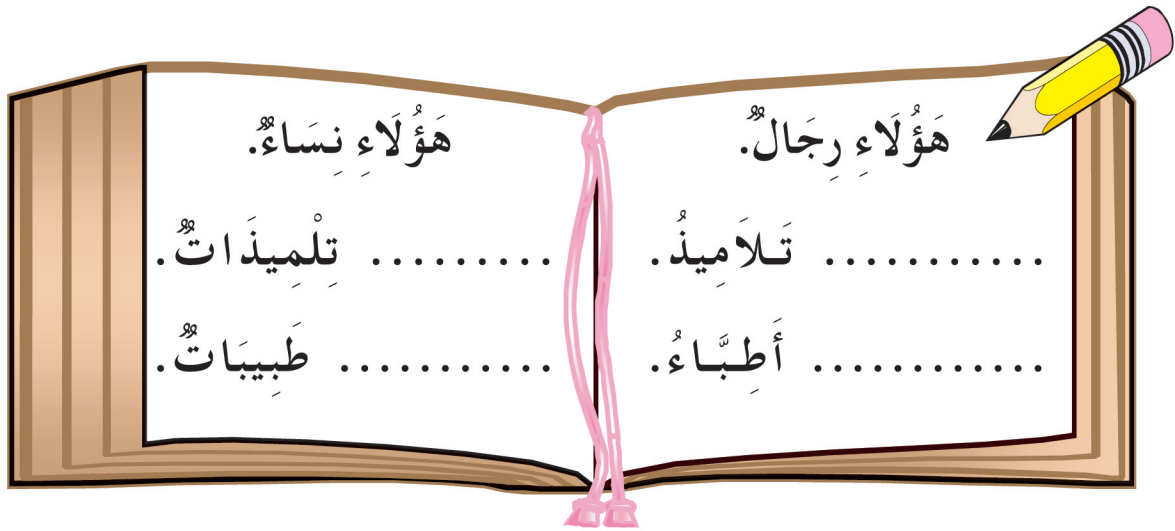 هَؤُلَاءِ رِجَالٌ.
............ تَـلَامِيذُ.
............ أَطِـبَّـاءُ.
هَؤُلَاءِ نِسَاءٌ.
......... تِلْمِيذَاتٌ.
........... طَبِيبَاتٌ.